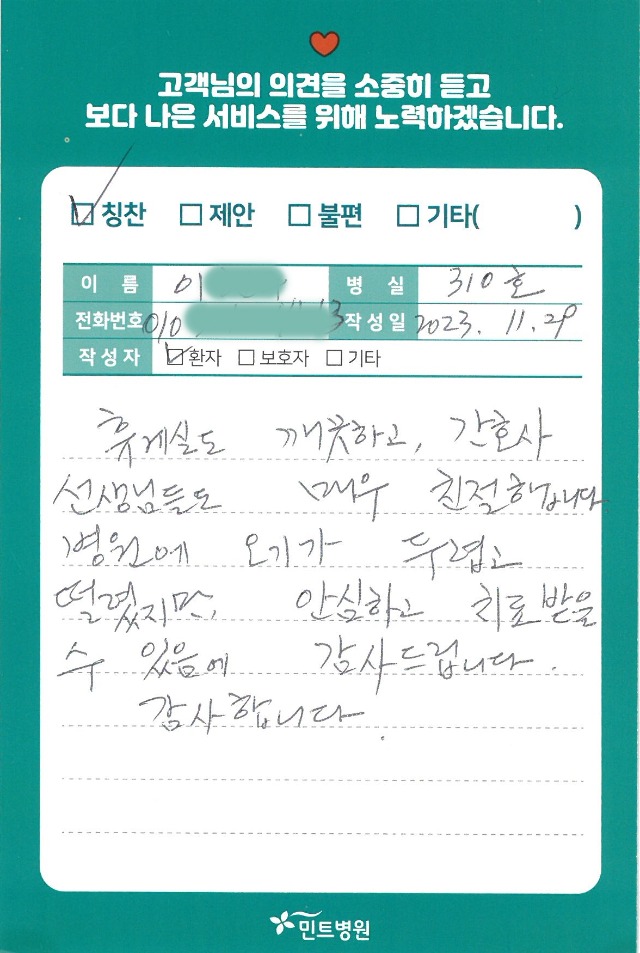 고객님의 의견을 소중히 듣고
보다 나은 서비스를 위해 노력하겠습니다.
칭찬 제안 불편 기타( )
이 름 이 병 실 310호
전화번호 010 13 작성일 2023. 11. 29
작성자 환자 보호자 기타
휴게실도 깨끗하고, 간호사
선생님들도 매우 친절해입니다
병원에 오기가 두렵고
떨렸지만, 안심하고 치료받을
수 있음에 감사드립니다.
감사합니다.
민트병원